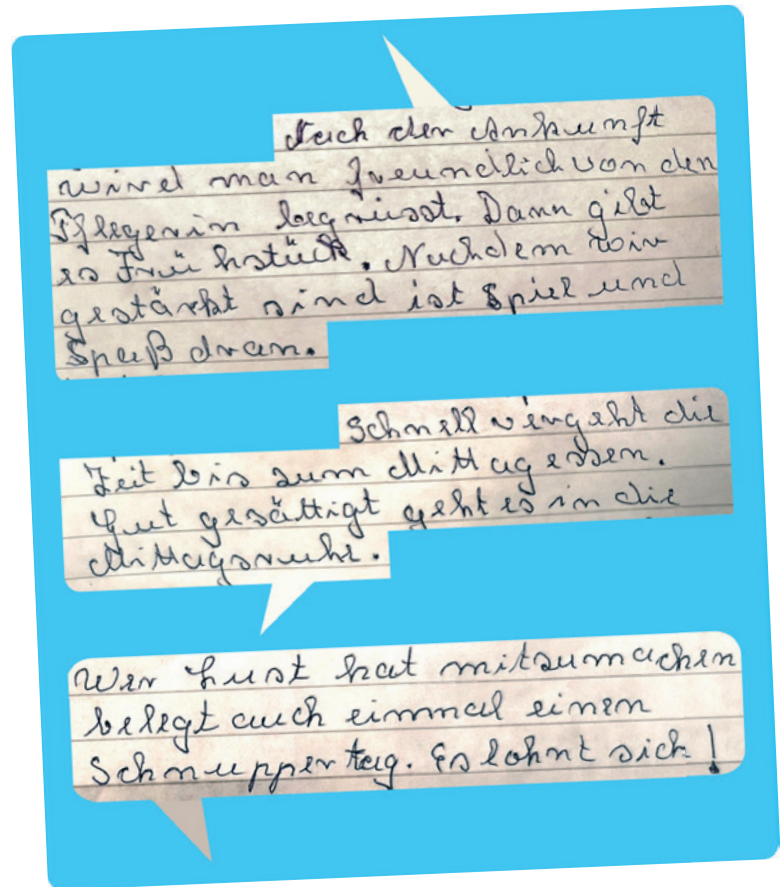 Nach der Ankunft
wird man freundlich von den
Pflegerin begrüsst. Dann gibt
es Frühstück. Nachdem wir
gestärkt sind ist Spiel und
Spaß dran.
Schnell vergeht die
Zeit bis zum Mittagessen.
Gut gesättigt geht es in die
Mittagsruhe.
Wer Lust hat mitzumachen
belegt auch einmal einen
Schnuppertag. Es lohnt sich!